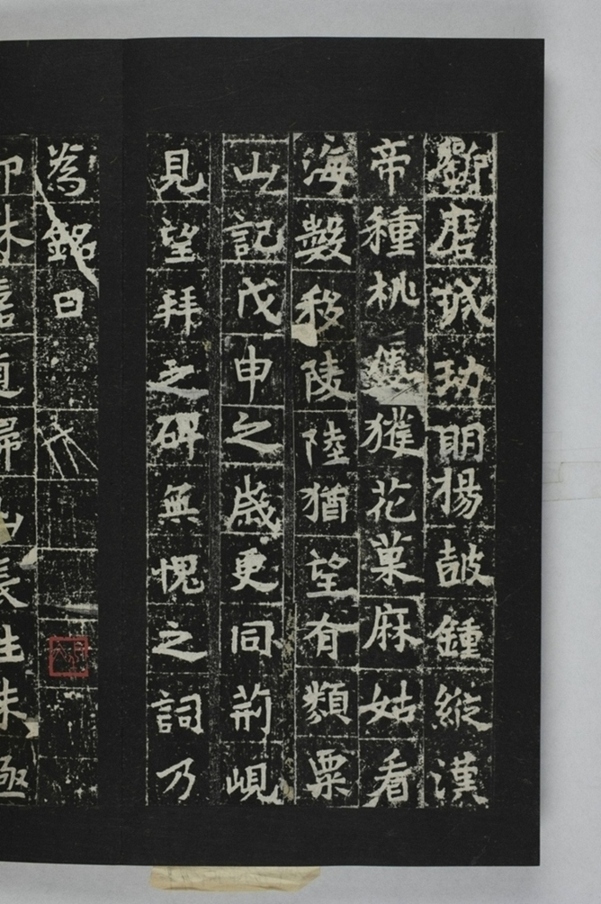 磨城明楊鼓鍾縱漢
帝種桃獲花菓麻姑看
海數移陵陸猶望有類粟
山記戊申之歲更同荊峴
見望拜之碑無愧之詞乃
為銘曰